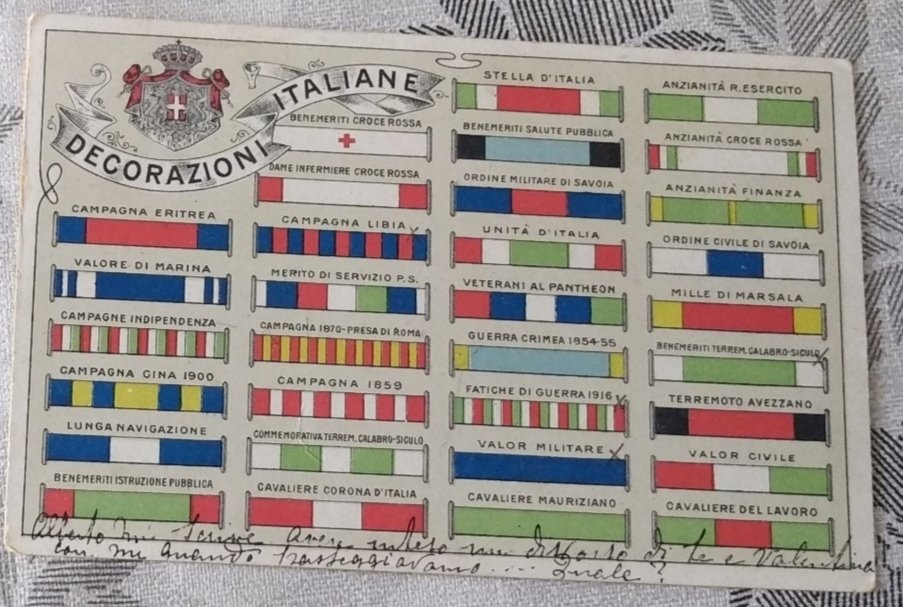 DECORAZIONI ITALIANE
CAMPAGNA ERITREA
VALORE DI MARINA
CAMPAGNE INDIPENDENZA
CAMPAGNA CINA 1900
LUNGA NAVIGAZIONE
BENEMERITI ISTRUZIONE PUBBLICA
BENEMERITI CROCE ROSSA
DAME INFERMIERE CROCE ROSSA
CAMPAGNA LIBIA
MERITO DI SERVIZIO P.S.
CAMPAGNA 1870-PRESA DI ROMA
CAMPAGNA 1859
COMMEMORATIVA TERREM. CALABRO-SICULO
CAVALIERE CORONA D'ITALIA
STELLA D'ITALIA
BENEMERITI SALUTE PUBBLICA
ORDINE MILITARE DI SAVOIA
UNITÀ D'ITALIA
VETERANI AL PANTHEON
GUERRA CRIMEA 1854-55
FATICHE DI GUERRA 1916
VALOR MILITARE
CAVALIERE MAURIZIANO
ANZIANITÀ R. ESERCITO
ANZIANITÀ CROCE ROSSA
ANZIANITÀ FINANZA
ORDINE CIVILE DI SAVOIA
MILLE DI MARSALA
BENEMERITI TERREM. CALABRO-SICULO
TERREMOTO AVEZZANO
VALOR CIVILE
CAVALIERE DEL LAVORO
Alberto mi scrive aver inteso un discorso di te e Valentina
con me quando passeggiavamo.... Quale?